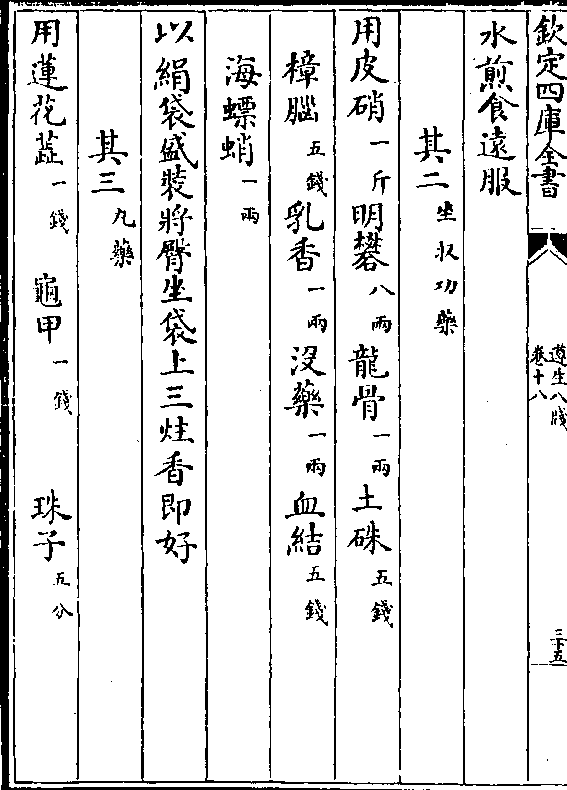 欽定四庫全書
遵生八牋
卷十八
三十五
水煎食遠服
其二坐収功藥
用皮硝一斤明礬八兩龍骨一兩土硃五錢
樟腦五錢乳香一兩沒藥一兩血結五錢
海螵蛸一兩
以絹袋盛裝將臀坐袋上三炷香即好
其三丸藥
用蓮花蕋一錢龜甲一錢珠子五分